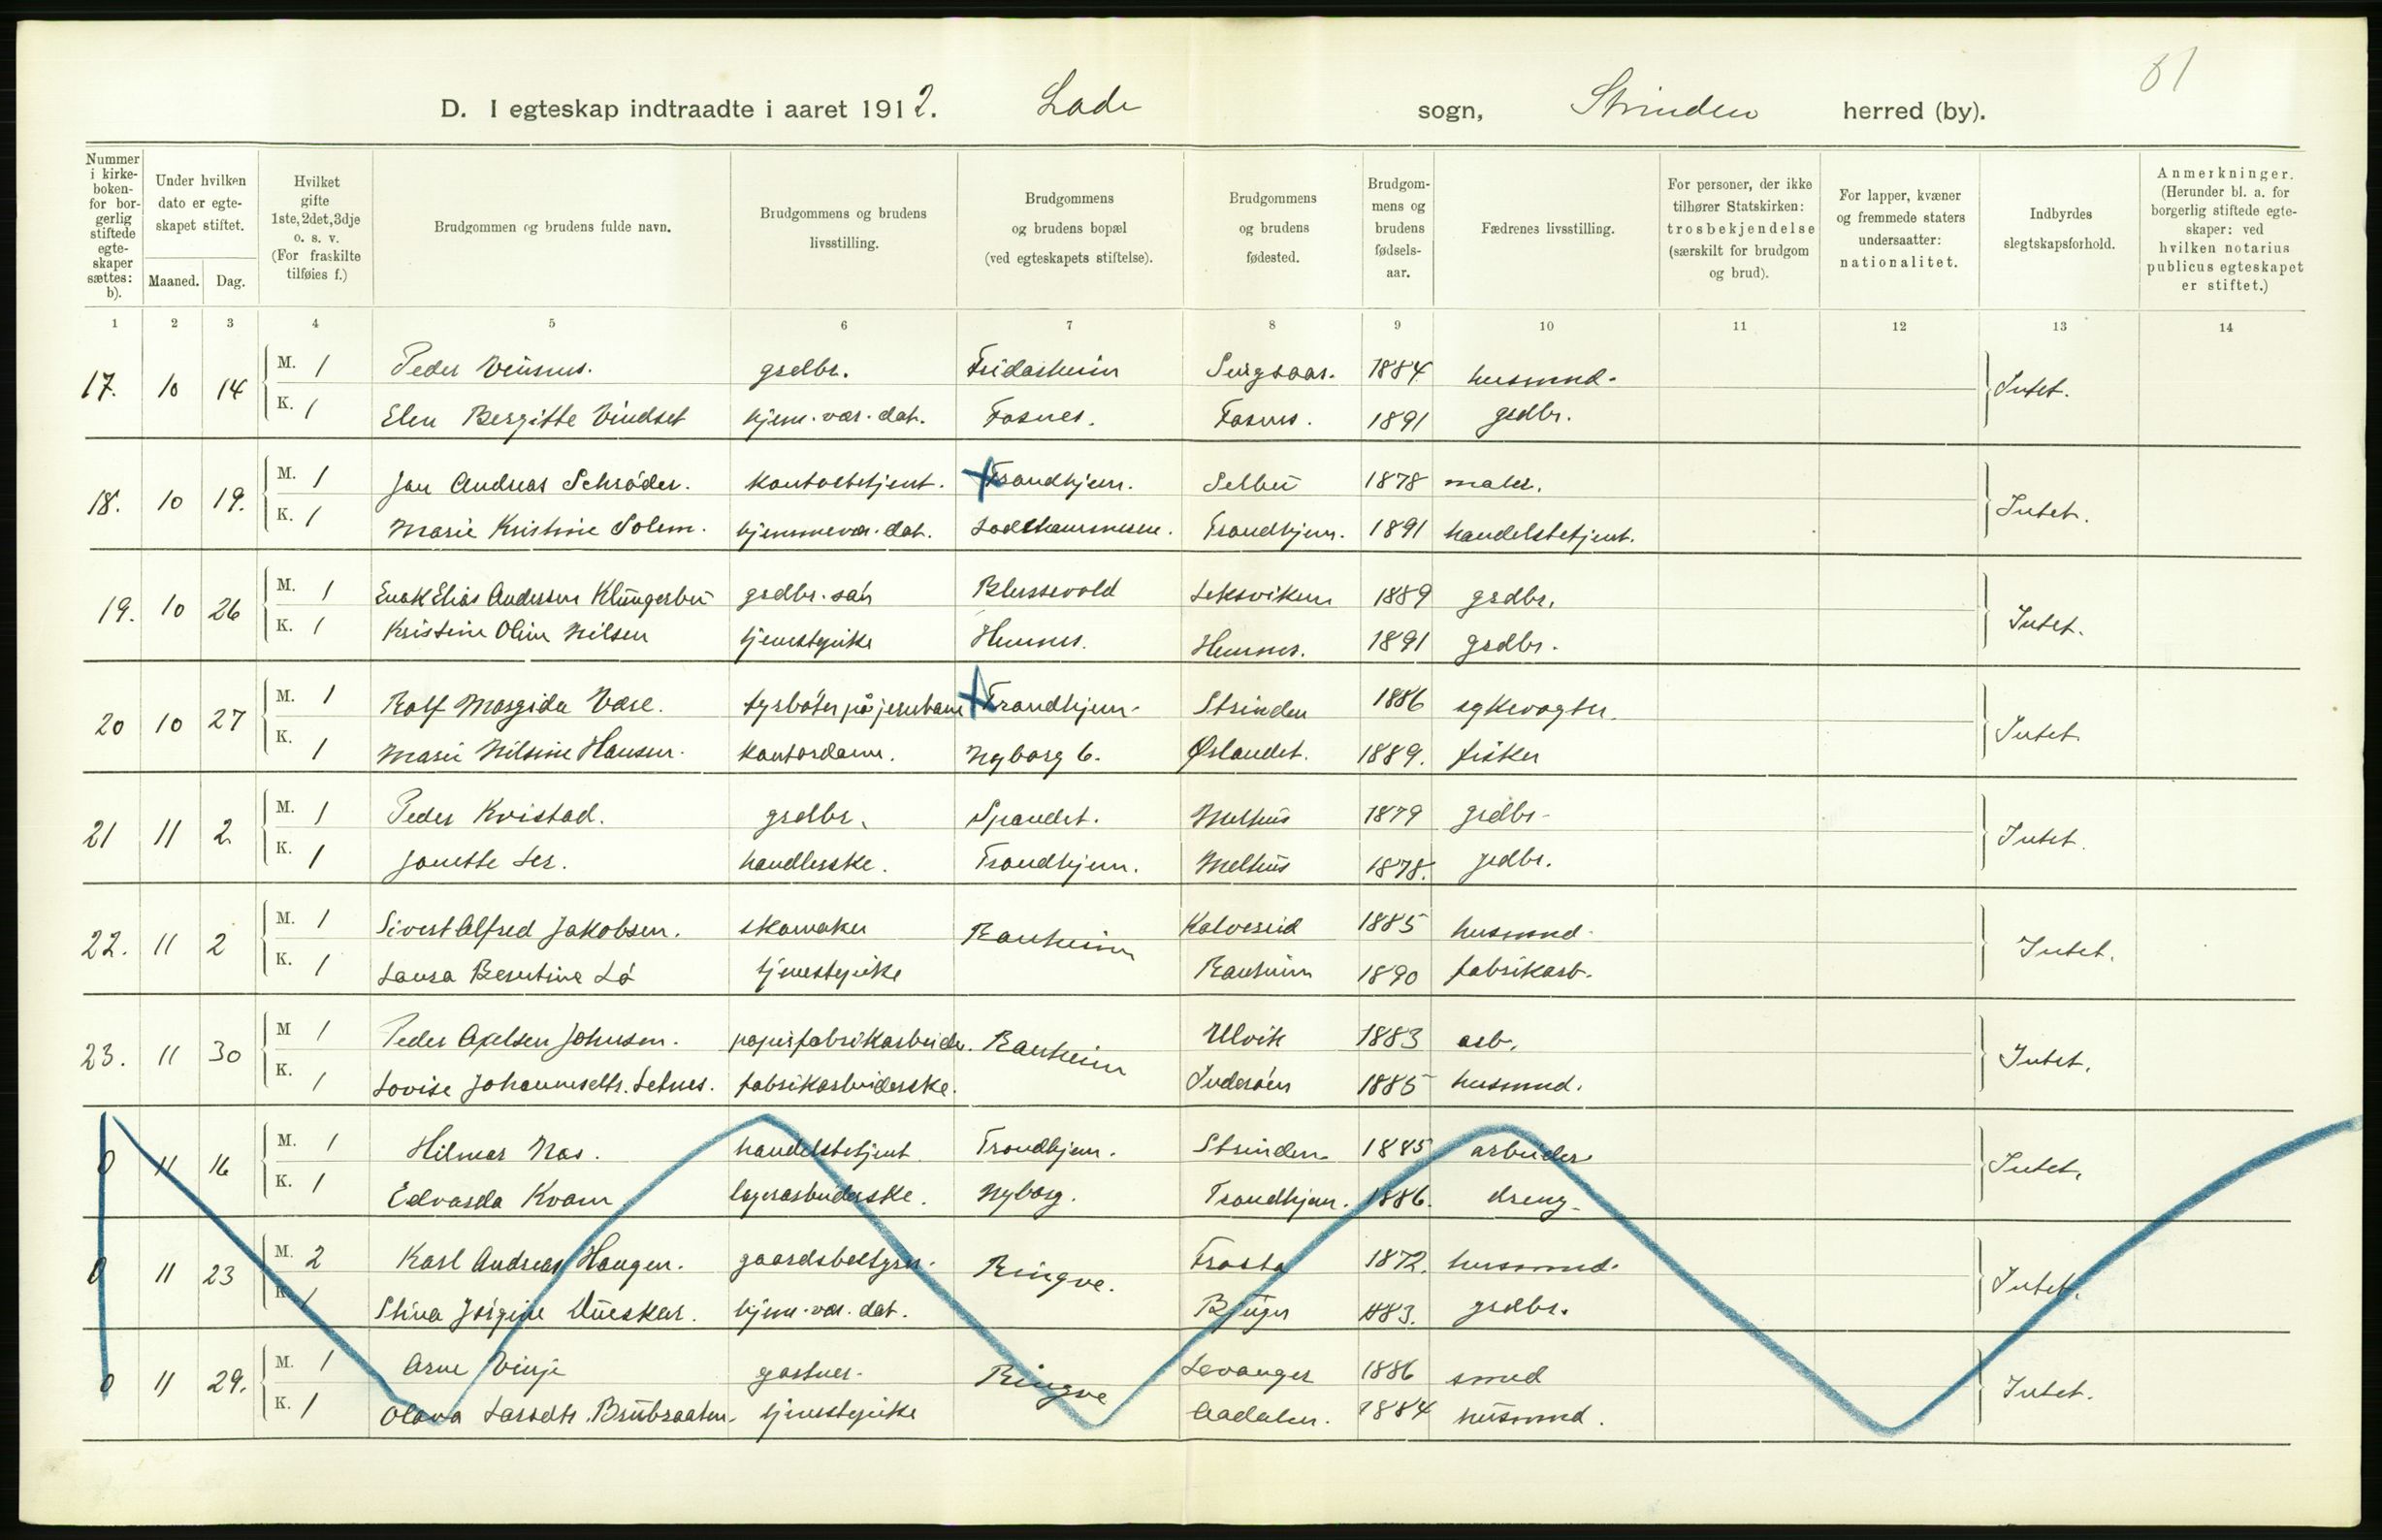 81
D. I egteskap indtraadte i aaret 1912. Lade sogn, Strinden herred (by).
Nummer i kirkeboken- for borgerlig stiftede egteskaper sættes: b).
Under hvilken dato er egteskapet stiftet.
Maaned. Dag.
Hvilket gifte 1ste, 2det, 3dje o. s. v. (For fraskilte tilføies f.)
Brudgommen og brudens fulde navn.
Brudgommens og brudens livsstilling.
Brudgommens og brudens bopæl (ved egteskapets stiftelse).
Brudgommens og brudens fødested.
Brudgommens og brudens fødsels- aar.
Fædrenes livsstilling.
For personer, der ikke tilhører Statskirken: trosbekjendelse (særskilt for brudgom og brud).
For lapper, kvæner og fremmede staters undersaatter: nationalitet.
Indbyrdes slegtskapsforhold.
Anmerkninger. (Herunder bl. a. for borgerlig stiftede egteskaper: ved hvilken notarius publicus egteskapet er stiftet.)
1 2 3 4 5 6 7 8 9 10 11 12 13 14
17. 10 14 M. 1 Peder gsdbr. 1884 husmnd. Intet.
K. 1 Elen Bergitte Vindset hjem. vær. dat. Fosnes. Fosnes. 1891 gsdbr.
18. 10 19. M. 1 Jon Andreas Schrøder. kontorbetjent. Trondhjem. Selbu 1878 maler. Intet.
K. 1 Marie Kristine Solem. hjemmevær. dat. Ladehammeren. Trondhjem. 1891 handelsbetjent.
19. 10 26 M. 1 Enok Elias Andersen Klungerbu gsdbr. søn Blussevold Leksviken 1889 gsdbr. Intet.
K. 1 Kristine Oline Nilsen tjenestepike Hemnes. Hemnes. 1891 gsdbr.
20 10 27 M. 1 Rolf Margido Vase. fyrbøter på jernbane Trondhjem. Strinden 1886 sykevogter. Intet.
K. 1 Marie Nilsine Hansen. kontordame. Nyborg 6. Ørlandet. 1889. fisker
21 11 2 M. 1 Peder Kvistad. gsdbr. Spandet. Melhus 1879 gsdbr. Intet.
K. 1 Janette Ler. handlerske. Trondhjem. Melhus 1878. gsdbr.
22. 11 2 M. 1 Sivert Alfred Jakobsen. skomaker Ranheim Kolvereid 1885 husmnd. Intet.
K. 1 Laura Berntine Lø tjenestepike Ranheim 1890 fabrikarb.
23. 11 30 M 1 Peder Axelsen Johnsen. papirfabrikarbeider. Ranheim Ulvik 1883 arb. Intet.
K. 1 Lovise Johannesdtr. Letnes. fabrikarbeiderske. Inderøen 1885 husmnd.
0 11 16 M. 1 Hilmar Nas. handelsbetjent Trondhjem. Strinden 1885 arbeider Intet.
K. 1 Edvarda Kvam lagerarbeiderske. Nyborg. Trondhjem. 1886. dreng
0 11 23 M. 2 Karl Andreas Haugen. gaardsbestyrer. Ringve. Frosta 1872. husmnd. Intet.
K. 1 Stina Jørgine hjem. vær. dat. Bjugn 1883. gsdbr.
0 11 29. M. 1 Arne Vinje gartner. Ringve Levanger 1886 smed Intet.
K. 1 Olava Larsdtr. Brubraaten. tjenestepike Aadalen. 1884 husmnd.